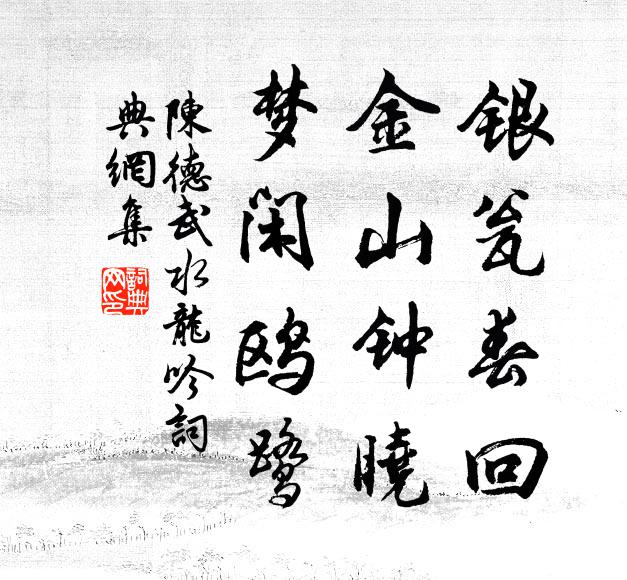 银瓮春回
金山钟曉
梦闲鸥鹭
陳德武水龍吟詞
典網集
詞典
网印